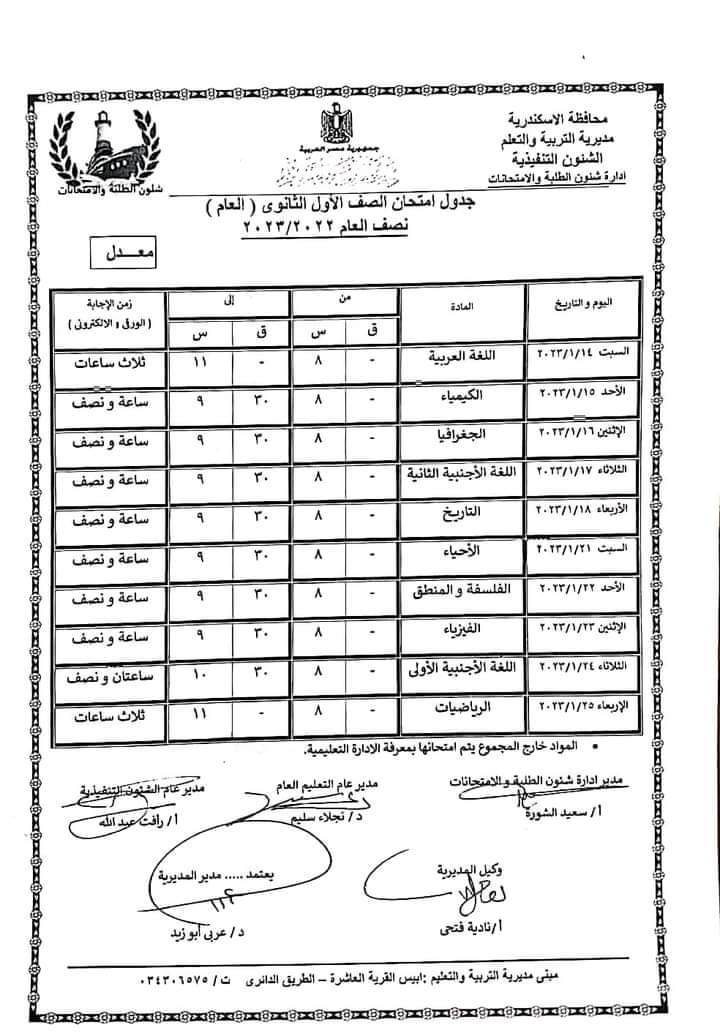 محافظة الاسكندرية
مديرية التربية والتعلم
الشئون التنفيذية
ادارة شئون الطلبة والامتحانات
جمهورية مصر العربية
شئون الطلبة والامتحانات
جدول امتحان الصف الأول الثانوى ( العام )
نصف العام ٢٠٢٣/٢٠٢٢
معدل
اليوم والتاريخ المادة من إلى زمن الإجابة
( الورقى والالكترونى )
ق س ق س
السبت ٢٠٢٣/١/١٤ اللغة العربية - ٨ - ١١ ثلاث ساعات
الأحد ٢٠٢٣/١/١٥ الكيمياء - ٨ ٣٠ ٩ ساعة ونصف
الإثنين ٢٠٢٣/١/١٦ الجغرافيا - ٨ ٣٠ ٩ ساعة ونصف
الثلاثاء ٢٠٢٣/١/١٧ اللغة الأجنبية الثانية - ٨ ٣٠ ٩ ساعة ونصف
الأربعاء ٢٠٢٣/١/١٨ التاريخ - ٨ ٣٠ ٩ ساعة ونصف
السبت ٢٠٢٣/١/٢١ الأحياء - ٨ ٣٠ ٩ ساعة ونصف
الأحد ٢٠٢٣/١/٢٢ الفلسفة والمنطق - ٨ ٣٠ ٩ ساعة ونصف
الإثنين ٢٠٢٣/١/٢٣ الفيزياء - ٨ ٣٠ ٩ ساعة ونصف
الثلاثاء ٢٠٢٣/١/٢٤ اللغة الأجنبية الأولى - ٨ ٣٠ ١٠ ساعتان ونصف
الإربعاء ٢٠٢٣/١/٢٥ الرياضيات - ٨ - ١١ ثلاث ساعات
• المواد خارج المجموع يتم امتحانها بمعرفة الادارة التعليمية.
مدير ادارة شئون الطلبة والامتحانات
أ/ سعيد الشورة
مدير عام التعليم العام
د/ نجلاء سليم
مدير عام الشئون التنفيذية
أ/ رافت عبد الله
وكيل المديرية
أ/نادية فتحى
يعتمد ..... مدير المديرية
د/ عربى أبو زيد
مبنى مديرية التربية والتعليم :ابيس القرية العاشرة – الطريق الدائرى ت/ ٠٣٤٣٠٦٥٧٥